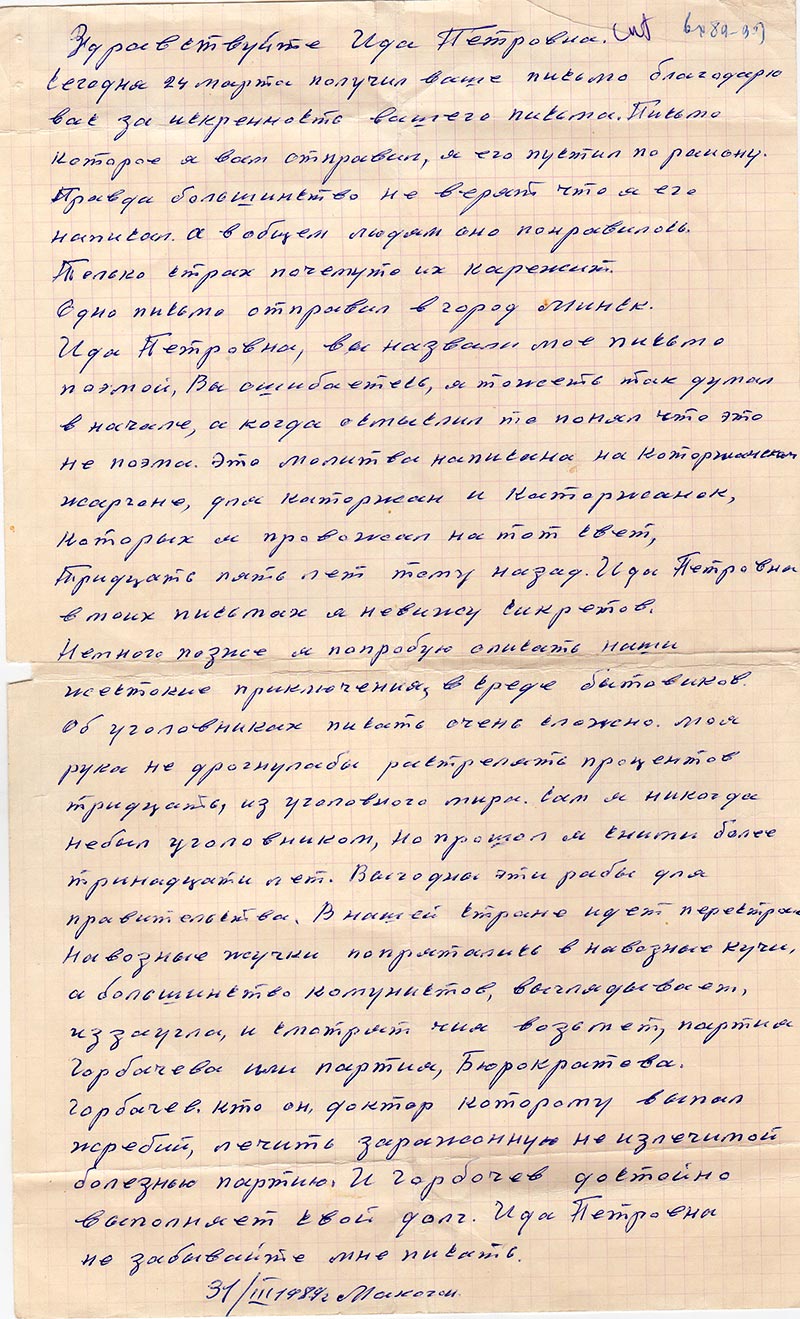 Здравствуйте Ида Петровна.
Сегодня 24 марта получил ваше письмо благодарю
вас за искренность вашего письма. Письмо
которое я вам отправил, я его пустил по району.
Правда большинство не верят что я его
написал. а вобщем людям оно понравилось.
Только страх почемуто их карежит.
Одно письмо отправил в город Минск.
Ида Петровна, вы назвали мое письмо
поэмой, Вы ошибаетесь, я тожеть так думал
в начале, а когда осмыслил то понял что это
не поэма. Это молитва написана на Которжанском
жаргоне, для каторжан и Каторжанок,
Которых я провожал на тот свет,
Тридцать пять лет тому назад. Ида Петровна
в моих письмах я невижу сикретов.
Немного позже я попробую описать наши
жестокие приключения, в среде бытовиков.
Об уголовниках писать очень сложно. моя
рука не дрогнулабы растрелять процентов
тридцать, из уголовного мира. Сам я никогда
небыл уголовником, но прошол я сними более
тринадцати лет. Выгодны эти рабы для
правительства. В нашей стране идет перестрой
Навозные жучки попрятались в навозные кучи,
а большинство комунистов, выглядывает,
иззаугла, и смотрят чия возьмет, партия
Горбачева или партия, Бюрократова.
Горбачев. кто он, доктор которому выпал
жребий, лечить заражонную не излечимой
болезнью партию. И Горбочев достойно
выполняет свой долг. Ида Петровна
не забывайте мне писать.
31/III 1989г